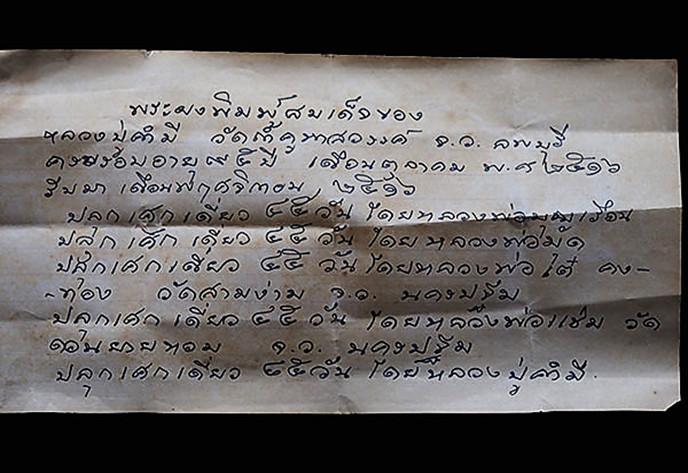 พระผงพิมพ์สมเด็จของ
หลวงปู่คำมี วัดถ้ำคูหาสวรรค์ จ.ว. ลพบุรี
ครบรอบอายุ๘๕ปี เดือนตุลาคม พ.ศ ๒๕๑๖
รับมา เดือนพฤศจิกายน ๒๕๑๖
ปลุกเศกเดี่ยว ๔๕ วัน โดยหลวงพ่อ
ปลุกเศก เดี่ยว ๔๕ วัน โดย หลวงพ่อ
ปลุกเศกเดี่ยว ๔๕ วัน โดยหลวงพ่อ เต๋ คง-
-ทอง วัดสามง่าม จ.ว. นครปฐม
ปลุกเศกเดี่ยว ๔๕ วัน โดยหลวงพ่อแช่ม วัด
ดอนยายหอม จ.ว. นครปฐม
ปลุกเศกเดี่ยว ๔๕วัน โดยหลวงปู่คำมี.